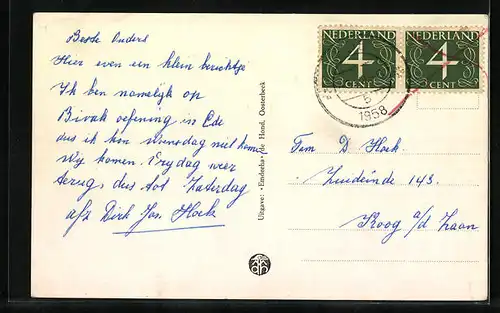 Beste Ouders
Hier even een klein berichtje
Ik ben namelijk op
Bivak oefening in Ede
dus ik kon woensdag niet komen
Wij komen. Vrydag weer
terug, dus tot Zaterdag
afz Dirk Jos. Hoek
Uitgave: «Eindecha» de Hond, Oosterbeek
NEDERLAND
4
CENT
NEDERLAND
4
CENT
1958
Fam D Hoek.
Zuideinde 143.
Koog a/d Zaan